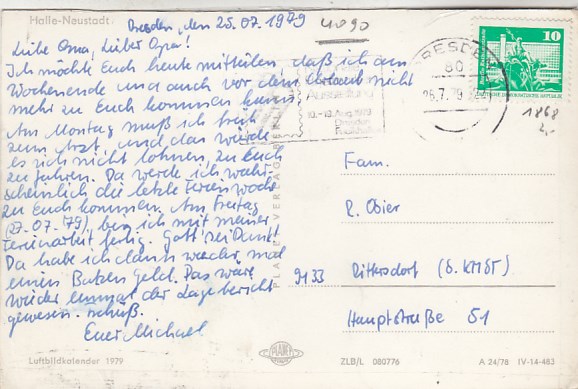 Halle-Neustadt
Dresden, den 25.07.1979
4090
Liebe Oma, Lieber Opa!
Ich möchte Euch heute mitteilen, daß ich am
Wochenende und auch vor dem Urlaub nicht
mehr zu Euch kommen kann.
Am Montag muß ich früh
zum Arzt, und das würde
es sich nicht lohnen, zu Euch
zu fahren. Da werde ich wahr-
scheinlich die letzte Ferienwoche
zu Euch kommen. Am Freitag
(27.07.79) bin ich mit meiner
Ferienarbeit fertig. Gott sei Dank!
Da habe ich dann wieder mal
einen Batzen Geld. Das wäre
wieder einmal der Lagebericht
gewesen. Schuß.
Euer Michael
Luftbildkalender 1979
10
DEUTSCHE DEMOKRATISCHE REPUBLIK
DRESDEN
80
26.7.79
Ausstellung
10.-19. Aug. 1979
Dresden
1868
2,-
PLANET-VERLAG BERLIN
Fam.
R. Obier
9133 Rittersdorf (b. KMSt)
Hauptstraße 51
PLANET
ZLB/L 080776
A 24/78 IV-14-483